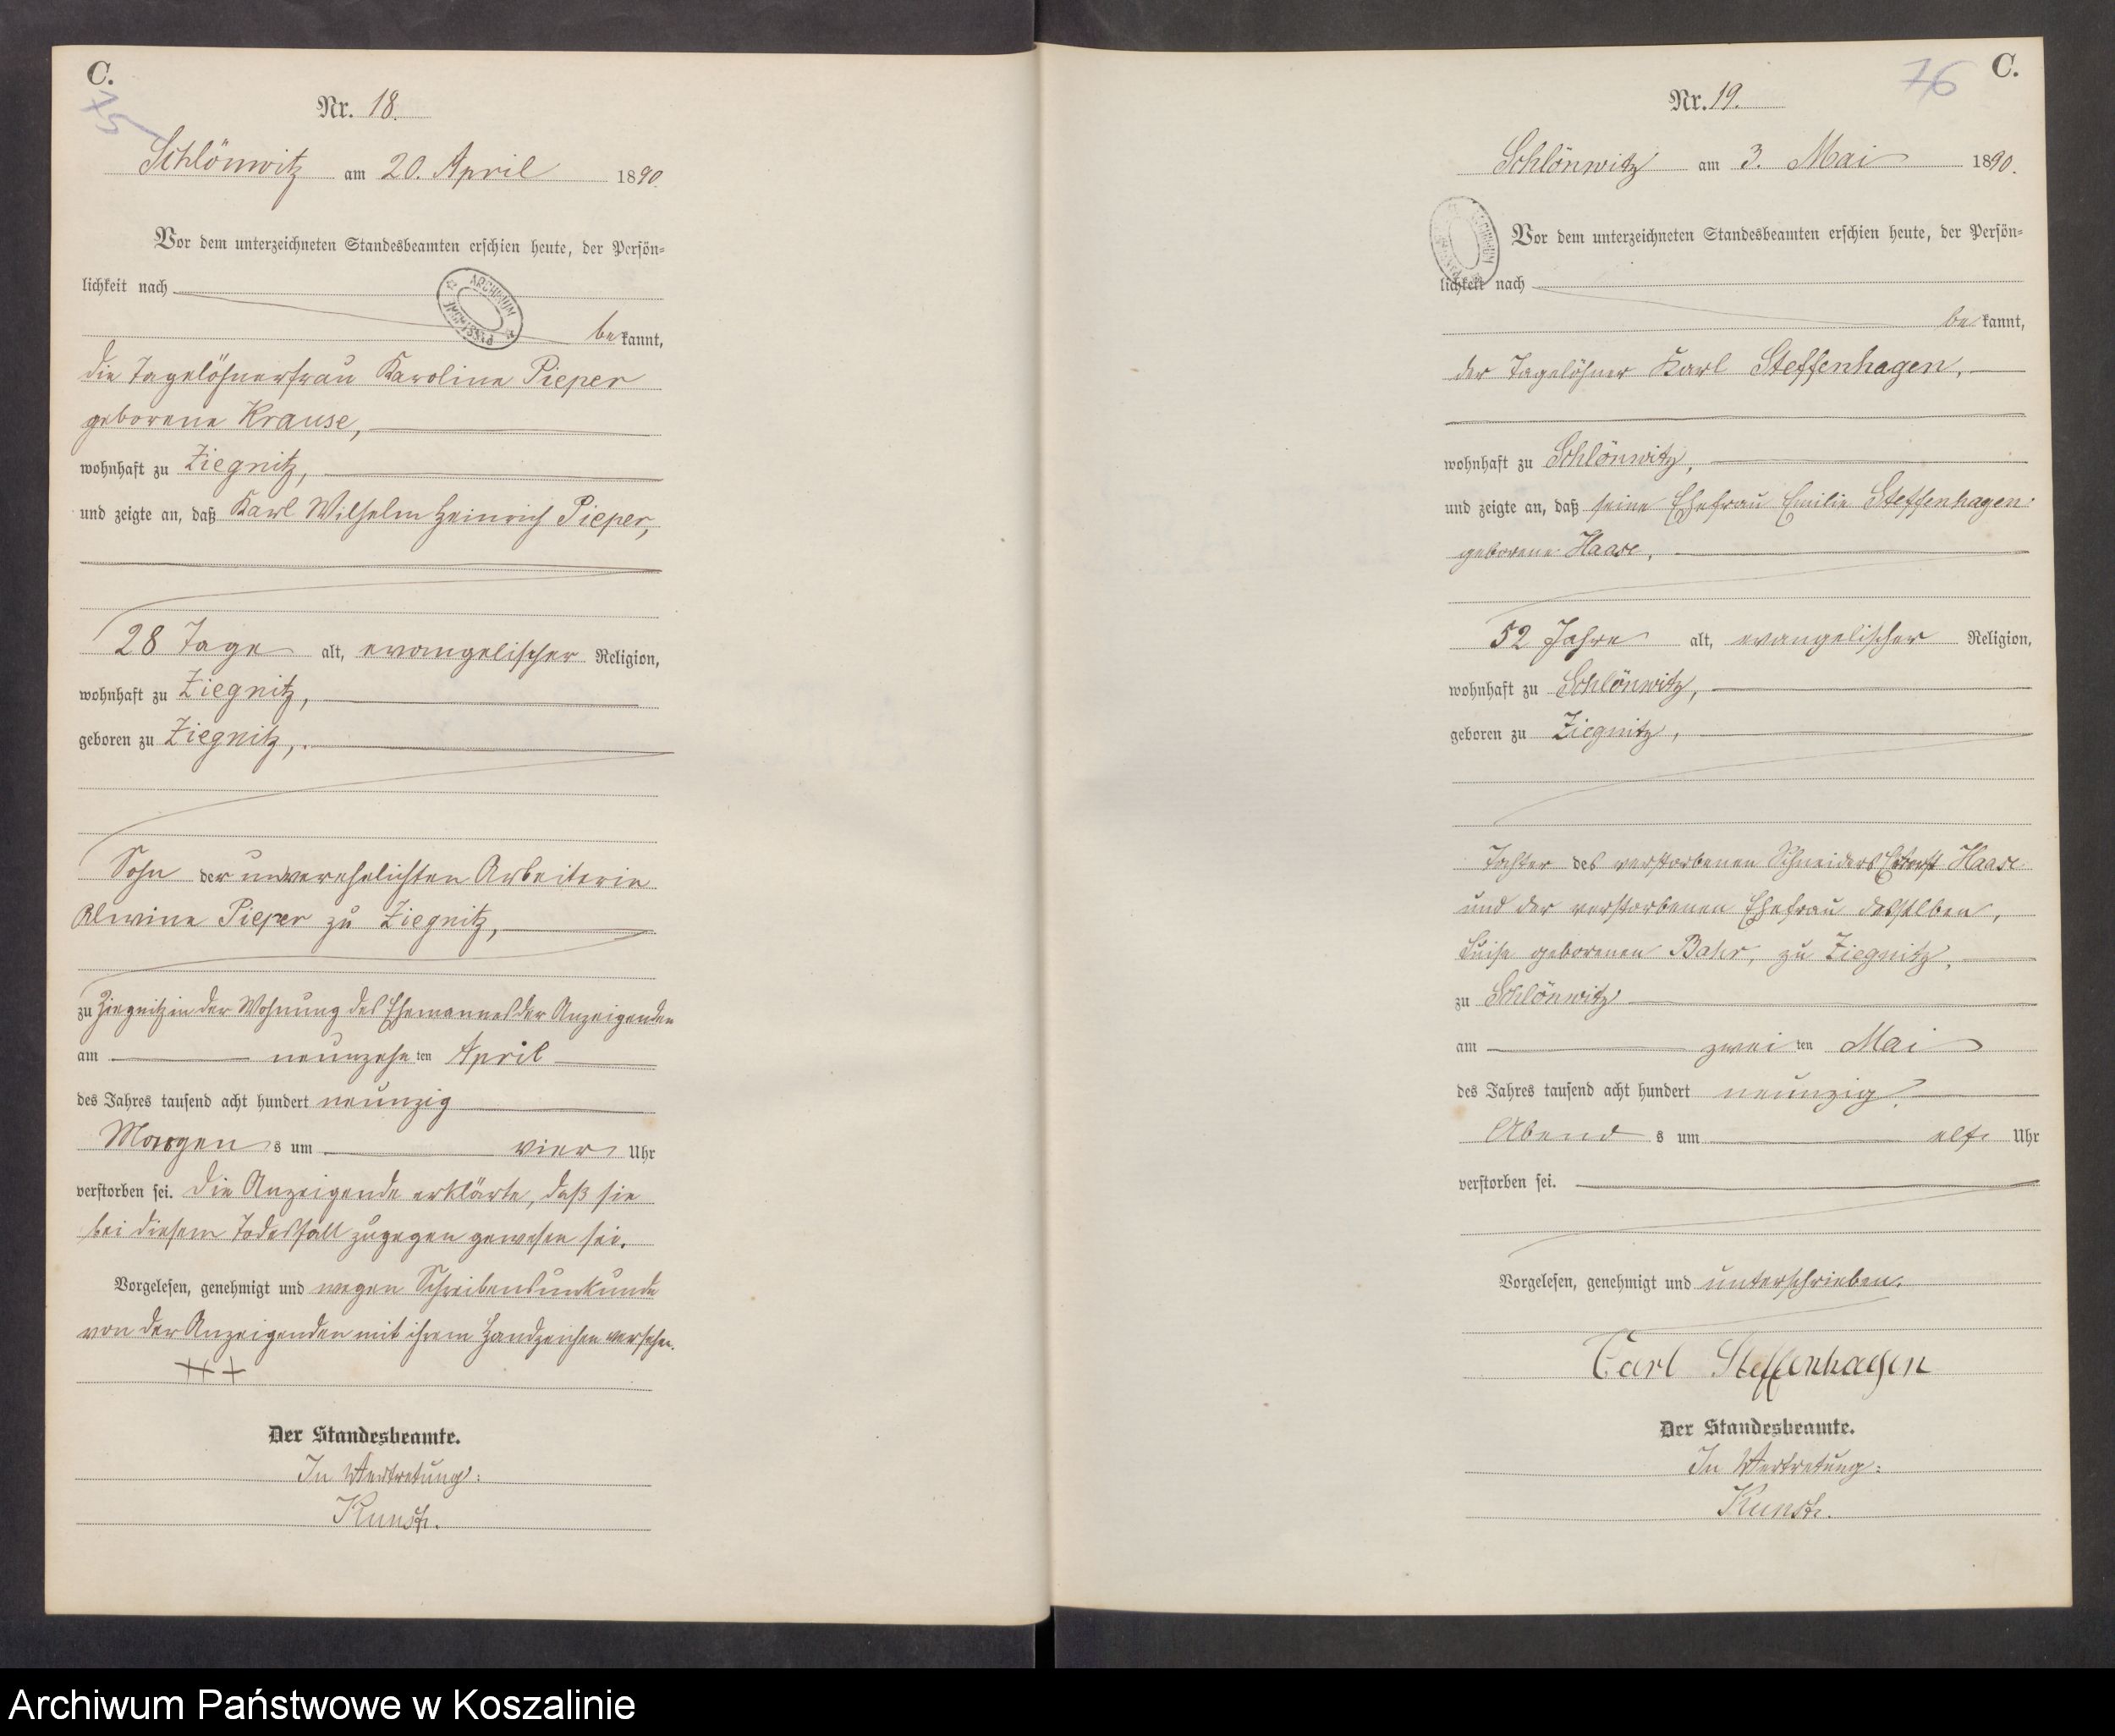 C.
75
Nr. 18.
Schlönwitz am 20. April 1890.
Vor dem unterzeichneten Standesbeamten erschien heute, der Persön-
lichkeit nach
ARCHIWUM
bekannt,
die Tagelöhnerfrau Karoline Pieper
geborene Krause,
wohnhaft zu Ziegnitz,
und zeigte an, daß Karl Wilhelm Heinrich Pieper,
28 Tage alt, evangelischer Religion,
wohnhaft zu Ziegnitz,
geboren zu Ziegnitz,
Sohn der unverehelichten Arbeiterin
Alwine Pieper zu Ziegnitz,
zu Ziegnitz in der Wohnung des Ehemannes der Anzeigenden
am neunzehnten April
des Jahres tausend acht hundert neunzig
Morgens um vier Uhr
verstorben sei. Die Anzeigende erklärte, daß sie
bei diesem Todesfall zugegen gewesen sei.
Vorgelesen, genehmigt und wegen Schreibensunkunde
von der Anzeigenden mit ihrem Handzeichen versehen.
+++
Der Standesbeamte.
In Vertretung:
76
C.
Nr. 19.
Schlönwitz am 3. Mai 1890.
Vor dem unterzeichneten Standesbeamten erschien heute, der Persön-
lichkeit nach
bekannt,
der Tagelöhner Karl Steffenhagen,
wohnhaft zu Schlönwitz,
und zeigte an, daß seine Ehefrau Emilie Steffenhagen
geborene Haase,
52 Jahre alt, evangelischer Religion,
wohnhaft zu Schlönwitz,
geboren zu Ziegnitz,
Tochter des verstorbenen Schneiders Haase
und der verstorbenen Ehefrau desselben,
Luise geborenen zu Ziegnitz,
zu Schlönwitz
am zweiten Mai
des Jahres tausend acht hundert neunzig
Abends um elf Uhr
verstorben sei.
Vorgelesen, genehmigt und unterschrieben.
Carl Steffenhagen
Der Standesbeamte.
In Vertretung:
Archiwum Państwowe w Koszalinie